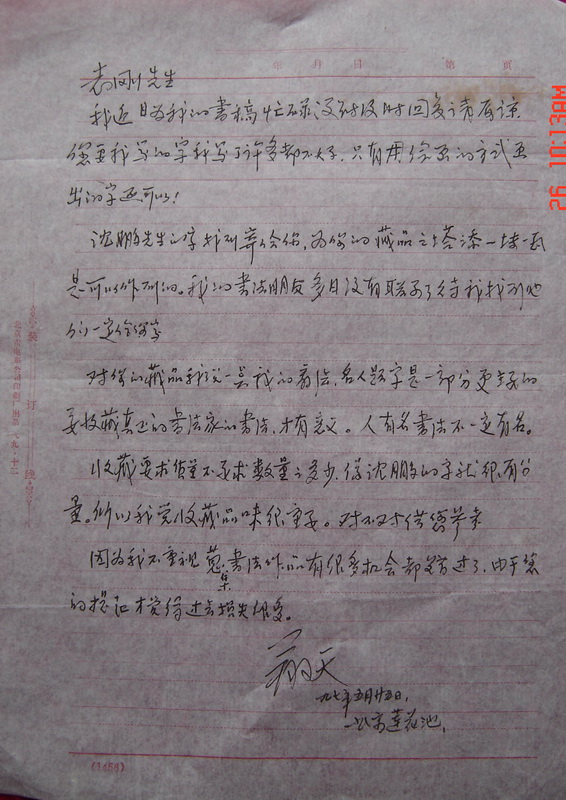 年 月 日 第 页
袁刚先生
我近日为我的书稿忙碌没有及时回复请原谅
您要我写的字我写了许多都不大好,只有用绘画的方式画
出的字还可以!
沈鹏先生的字找到寄给你,为你的藏品之塔添一块瓦
是可以作到的。我的书法朋友多日没有联系了待我找到他
们一定给你写
对你的藏品我说一点我的看法,名人题字是一部分更主要的
要收藏真正的书法家的书法,才有意义。人有名书法不一定有名。
收藏要求质量不寻求数量之多少,像沈鹏的字就很有分
量。所以我觉收藏品味很重要。对不对供您参考
因为我不重视蒐集书法作品有很多机会都错过了,由于您
的提醒才觉得过去损失很多。
天
九七年五月廿五日,
北京莲花池,
装 订 线
(1456)
26 10:13AM